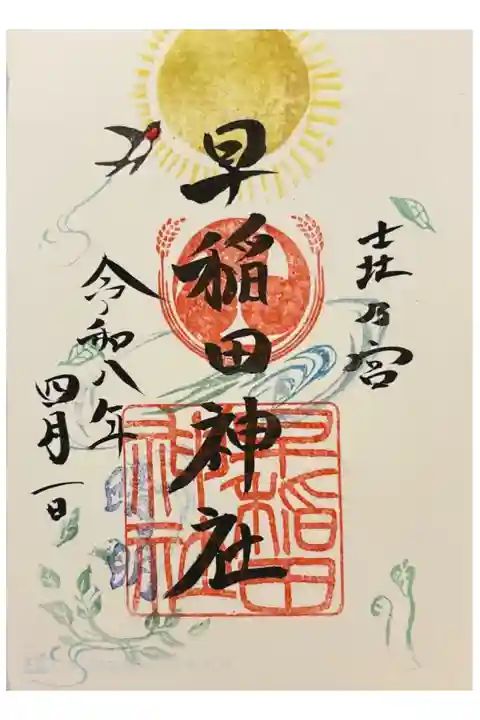 乃宮
早稲田神社
令和八年
四月一日
早稲田
神社
明